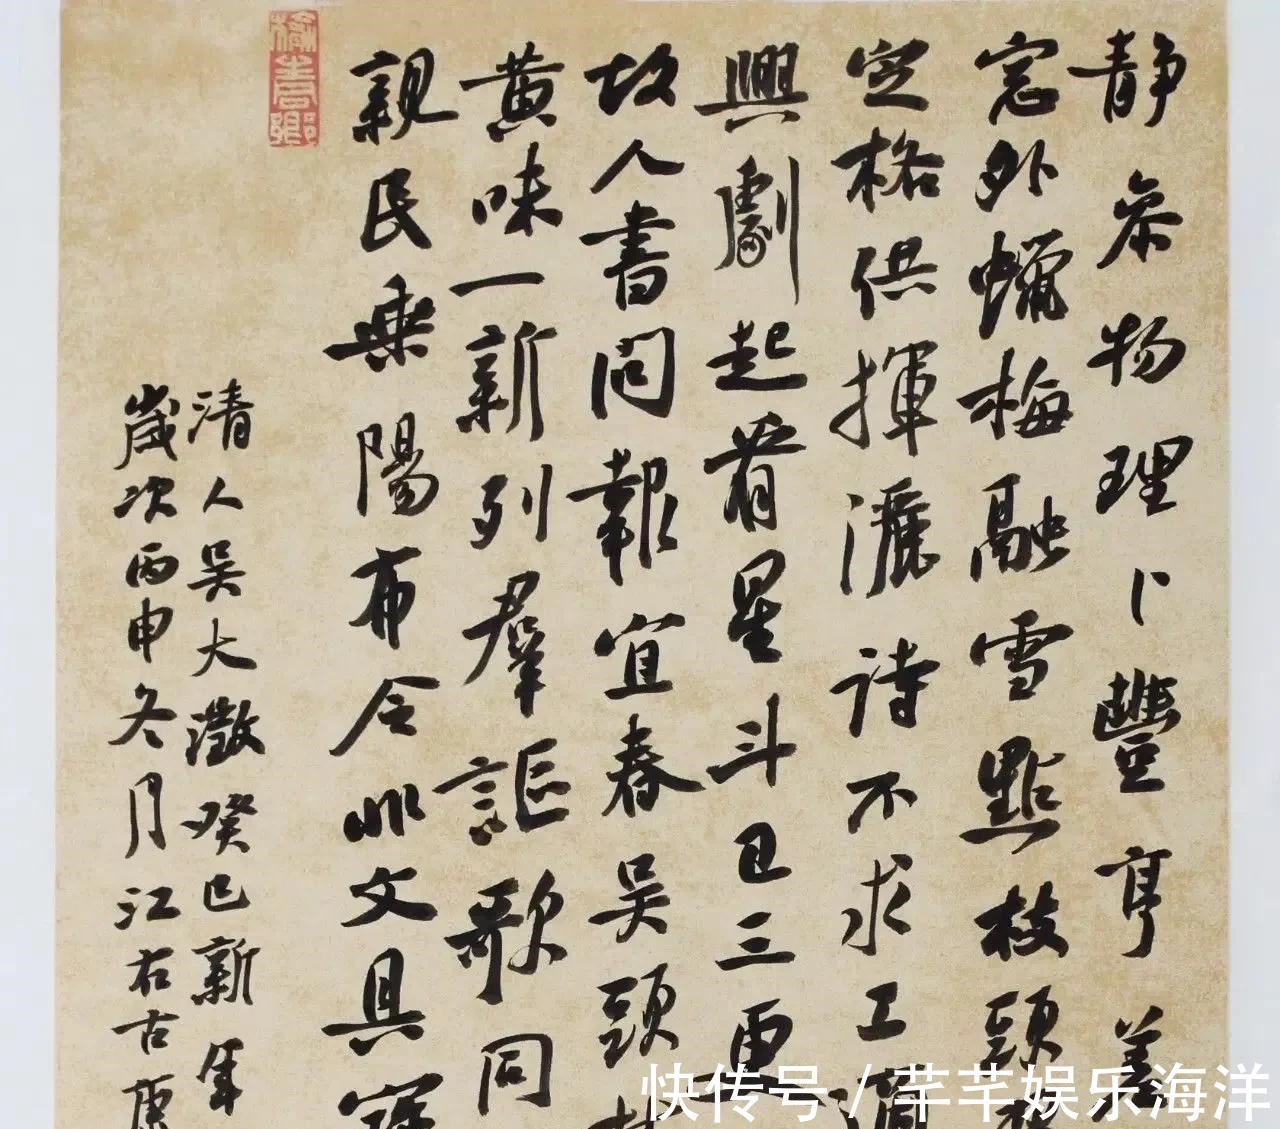 静参物理卜豐亨差
窓外蠟梅融雪點枝頭
定格俱揮灑诗不求工
興劇起看星斗丑三更
故人書问報宜春吴頭
黄味一新列羣謳歌同
親民樂陽布令兆文具
清人吴大澂癸巳新年
歲次丙申冬月江右古
快传号/芊芊娱乐海洋